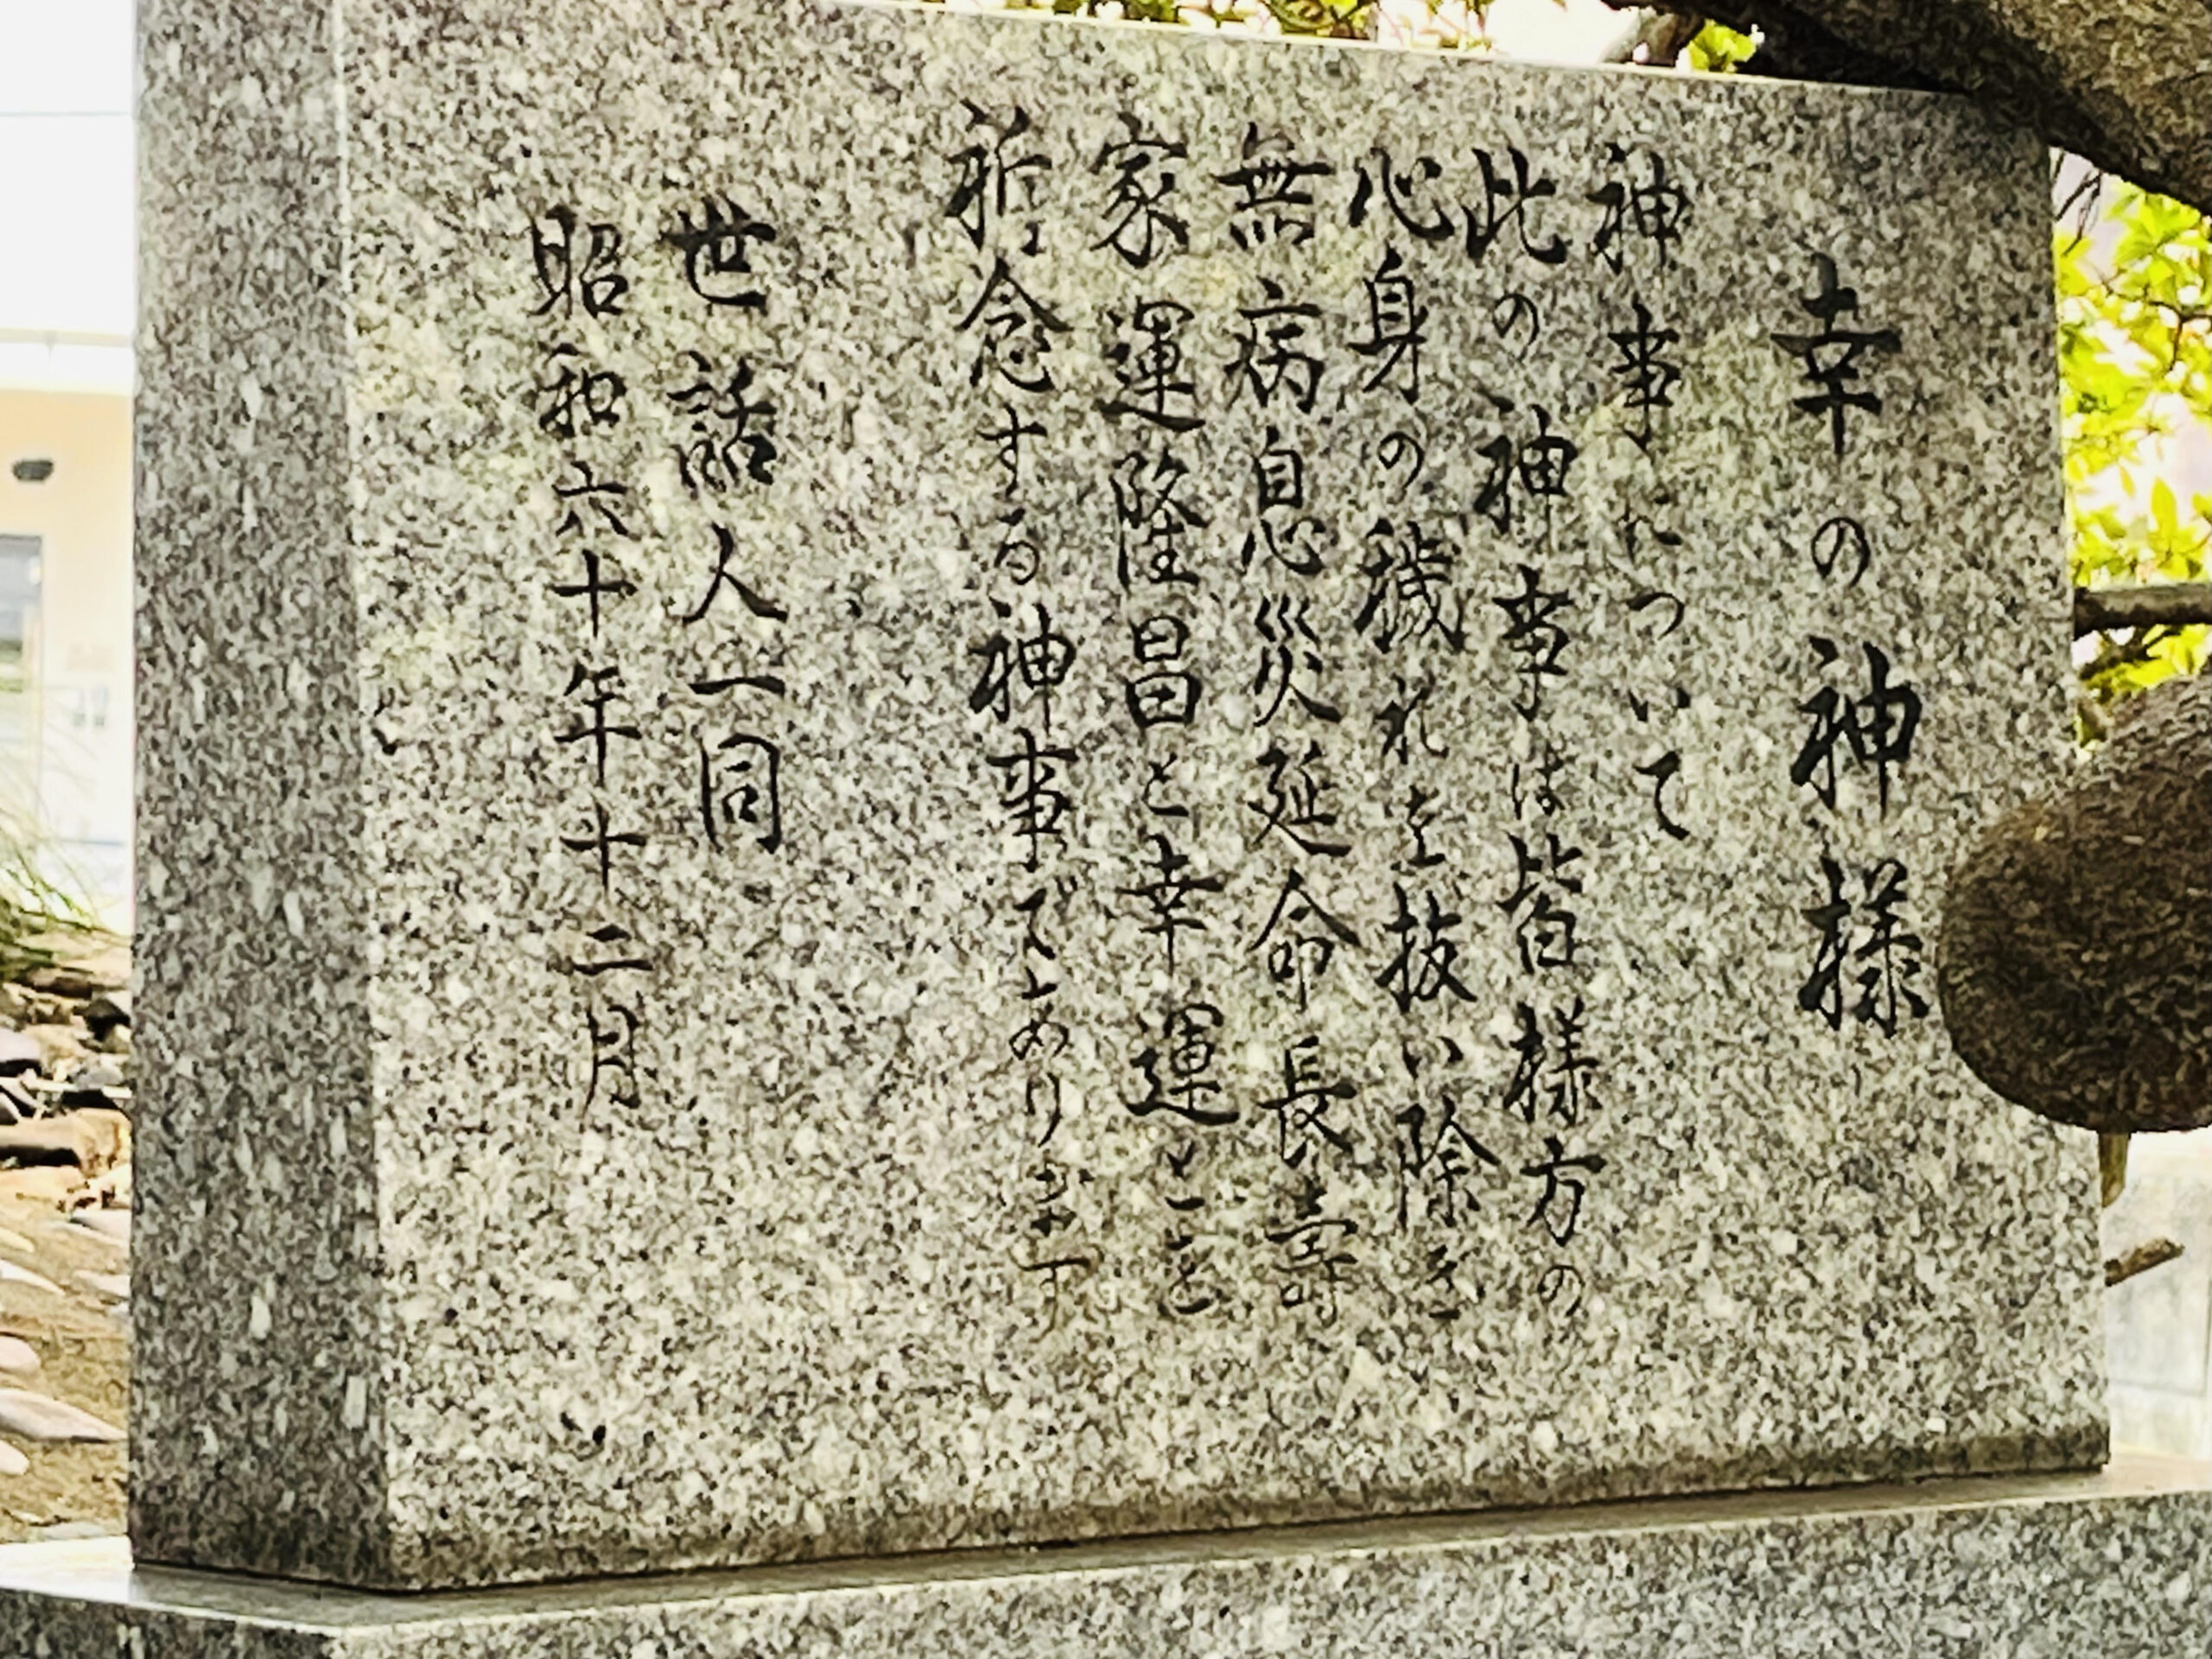 幸の神様
神事について
此の神事は皆様方の
心身の穢れを抜い除き
無病息災延命長寿
家運隆昌と幸運とを
祈念する神事であります
世話人一同
昭和六十年十二月